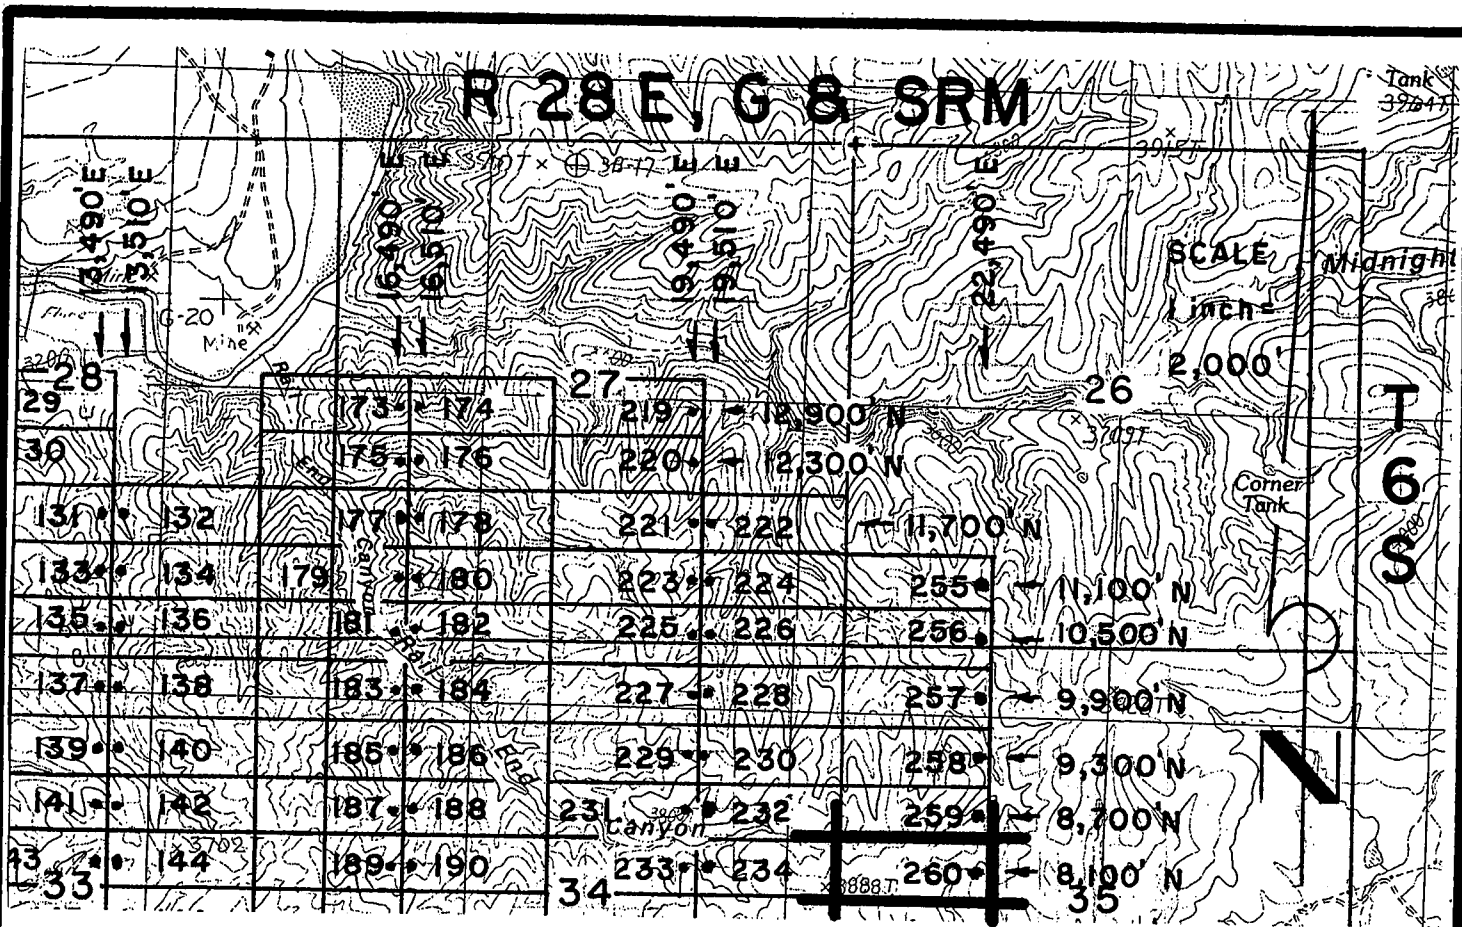 R 28 E, G & SRM
Tank
3964T
3915T
13,490'E
13,510'E
16,490'E
16,510' E
19,490'E
19,510' E
22,490'E
SCALE
1 inch =
2,000'
Midnight
G-20
Mine
28
27
26
T
6
S
29
173 174
219 12,900' N
3709T
30
175 176
220 12,300' N
End
Corner
Tank
131 132
177 178
221 222
11,700' N
Canyon
133 134
179 180
223 224
255 11,100' N
135 136
181 182
225 226
256 10,500' N
Rail
137 138
183 184
227 228
257 9,900' N
N
139 140
185 186
End
229 230
258 9,300' N
141 142
187 188
231 232
259 8,700' N
Canyon
43 144
3702
189 190
233 234
3888T
260 8,100' N
33
34
35